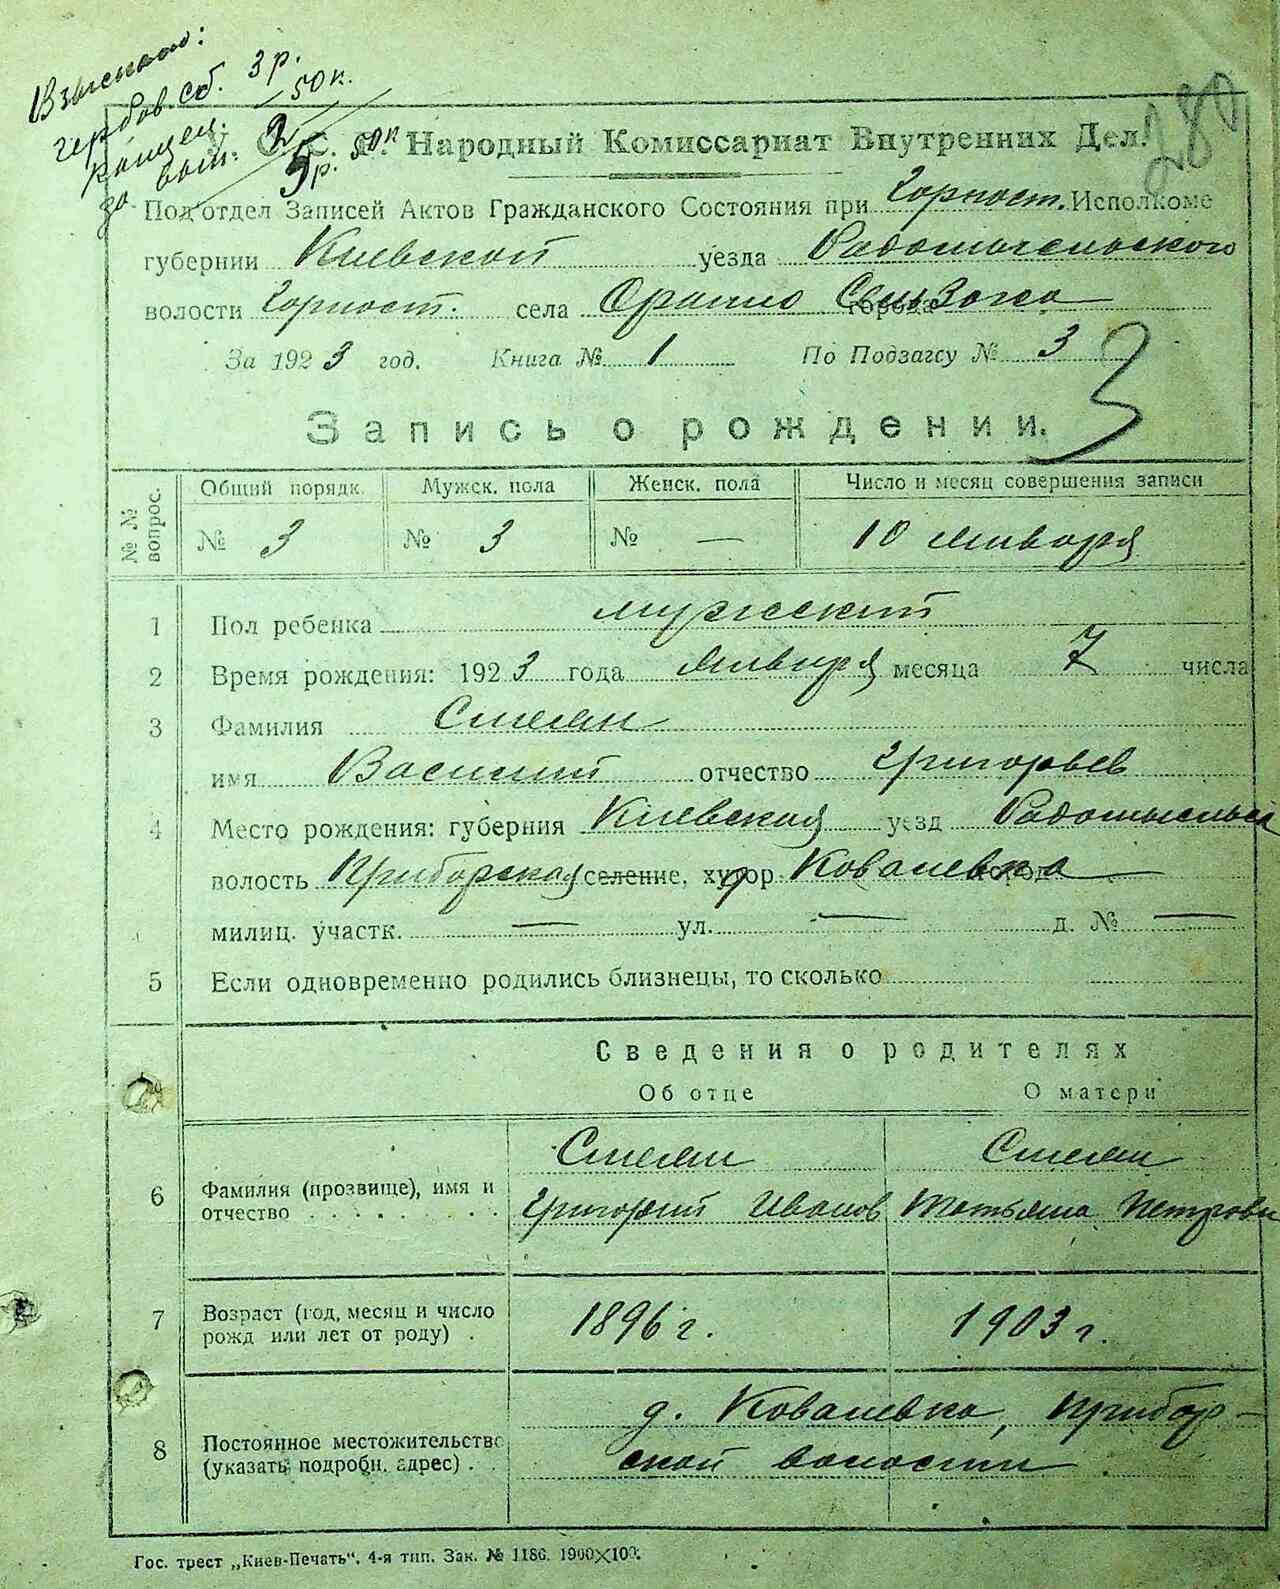 Взыскано:
гербов. сб. 3 р.
канцел. 50 к.
за бл. 2
5 р. 50 к
280
У. С. С. Р. Народный Комиссариат Внутренних Дел.
Подотдел Записей Актов Гражданского Состояния при Горност. Исполкоме
губернии Киевской уезда Радомысльского
волости Горност. села города
За 1923 год. Книга № 1 По Подзагсу № 3
3
Запись о рождении.
№ № вопрос. Общий порядк. Мужск. пола Женск. пола Число и месяц совершения записи
№ 3 № 3 № — 10 января
1 Пол ребенка мужеский
2 Время рождения: 1923 года января месяца 7 числа
3 Фамилия Смеян
имя Василий отчество Григорьев
4 Место рождения: губерния Киевская уезд
волость Приборская селение, хутор Ковалевка город
милиц. участк. — ул. — д. № —
5 Если одновременно родились близнецы, то сколько
Сведения о родителях
Об отце О матери
Смеян Смеян
6 Фамилия (прозвище), имя и
отчество . . . . . . . . Григорий Иванов Татьяна Петровн
7 Возраст (год, месяц и число
рожд или лет от роду) . 1896 г. 1903 г.
д. Ковалевка, Прибор-
8 Постоянное местожительство
(указать подробн. адрес) . . ской волости
Гос. трест „Киев-Печать". 4-я тип. Зак. № 1186. 1900×100.